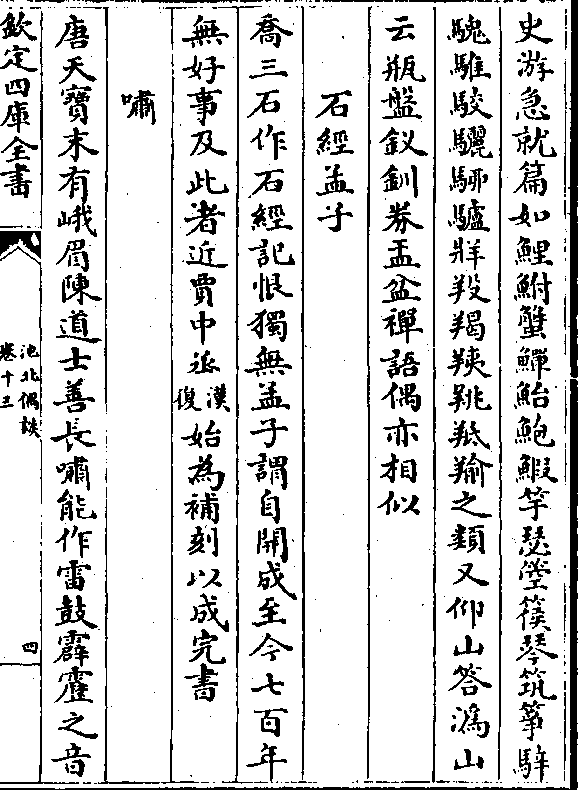 史游急就篇如鯉鮒蟹鱓鮐鮑鰕竽瑟箜篌琴筑箏騂
騩騅駮驪駵驢䍧羖羯羠羜羝羭之類又仰山答溈山
云瓶盤釵釧券盂盆禪語偶亦相似
石經孟子
喬三石作石經記恨獨無孟子謂自開成至今七百年
無好事及此者近賈中丞漢復始為補刻以成完書
嘯
唐天寶末有峨眉陳道士善長嘯能作雷鼓霹靂之音
欽定四庫全書
池北偶談
卷十三
四